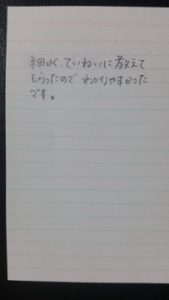 細かく ていねいに 教えて
もらったので わかりやすかった
です。